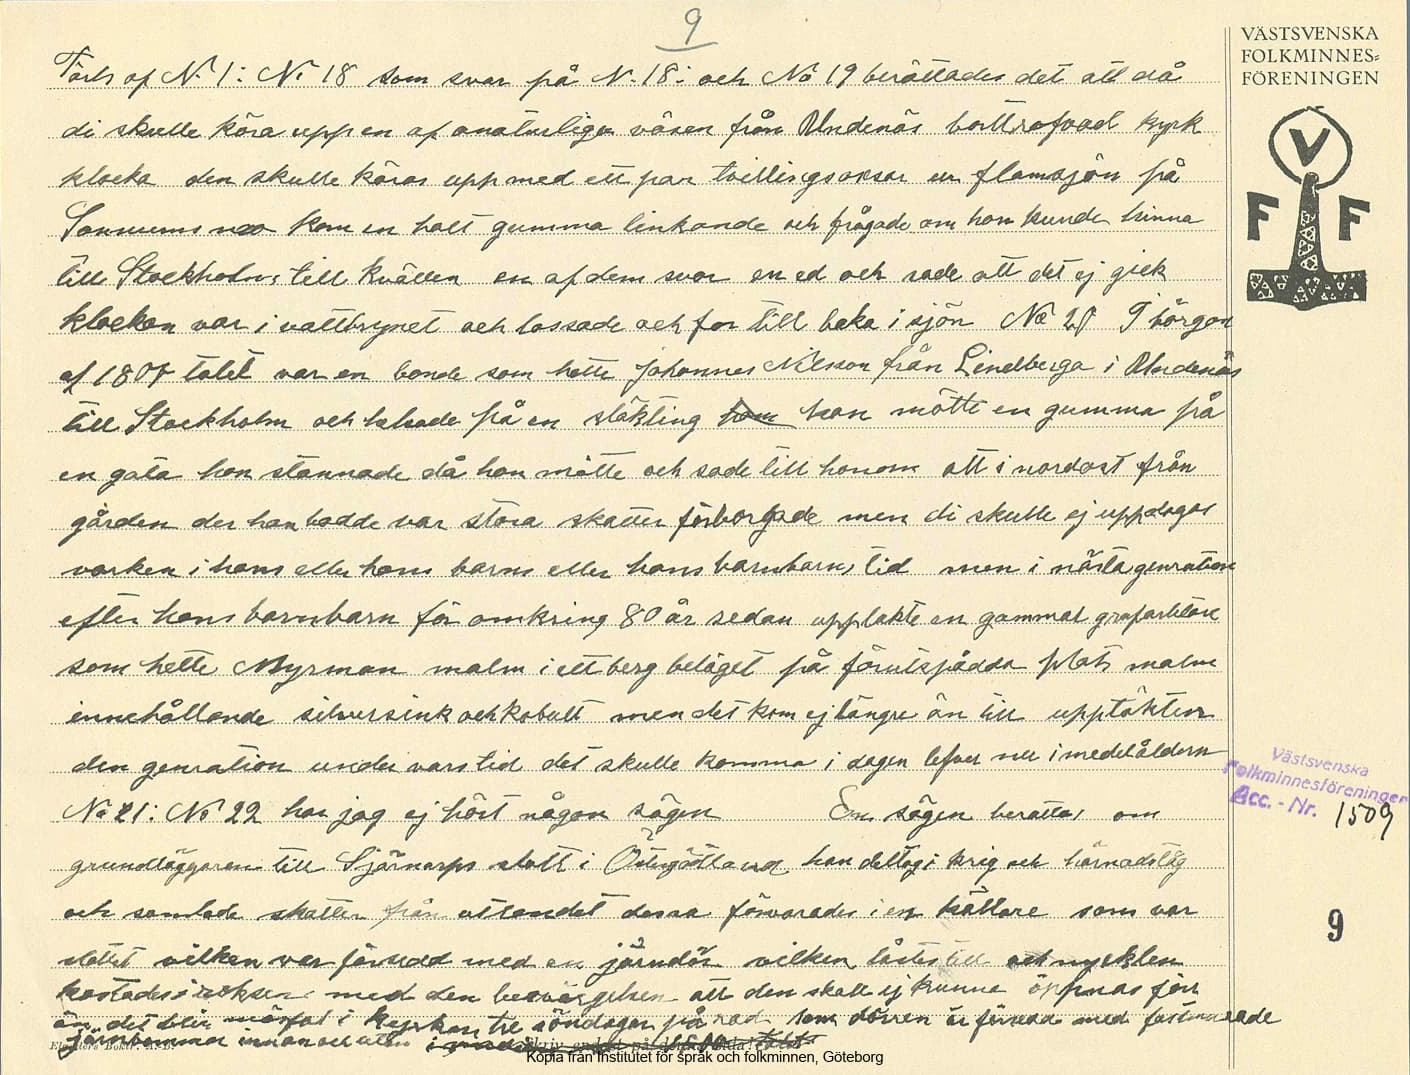 9
Forts af N. 1: No 18 som svar på N. 18: och No 19 berättades det att då
di skulle köra upp en af onaturliga väsen från Undenäs bortrofvad kyrk
klocka den skulle köras upp med ett par tvillingsoxsar ur flamsjön på
kom en halt gumma linkande och frågade om hon kunde hinna
till Stockholm till kvällen en af dem svor en ed och sade att det ej gick
klockan var i vattbrynet och lossade och for till baka i sjön No 20 I början
af 1800 talet var en bonde som hette Johannes Nilsson från Lindberga i Undenäs
till Stockholm och helsade på en släkting han mötte en gumma på
en gata hon stannade då han mötte och sade till honom att i nordost från
gården der han bodde var stora skatter förborgade men di skulle ej uppdagas
varken i hans eller hans barns eller hans barnbarns tid men i nästa genration
efter hans barnbarn för omkring 80 år sedan upptäkte en gammal grufarbetare
som hette Myrman malm i ett berg beläget på förutspådda plats malm
innehållande silver sink och kobolt men det kom ej längre än till upptäkten
den genration under vars tid det skulle komma i dagen lefver nu i medelåldern
No 21: No 22 har jag ej hört någon sägen En sägen berättas om
grundläggaren till Stjärnorps slott i Östergötland han deltog i krig och härnadståg
och samlade skatter från utlandet dessa förvarades i en källare som var
slottet vilken var försedd med en järndör vilken låstes till och nycklen
kastades i med den besvärgelsen att den skall ej kunna öppnas förr
än det blir i kyrkan tre söndagar på rad som dörren är försedd med fastmurade
järnbommar innan och utan
VÄSTSVENSKA
FOLKMINNES=
FÖRENINGEN
V
F F
Västsvenska
Folkminnesföreningen
Acc. - Nr. 1509
9
Kopia från Institutet för språk och folkminnen, Göteborg